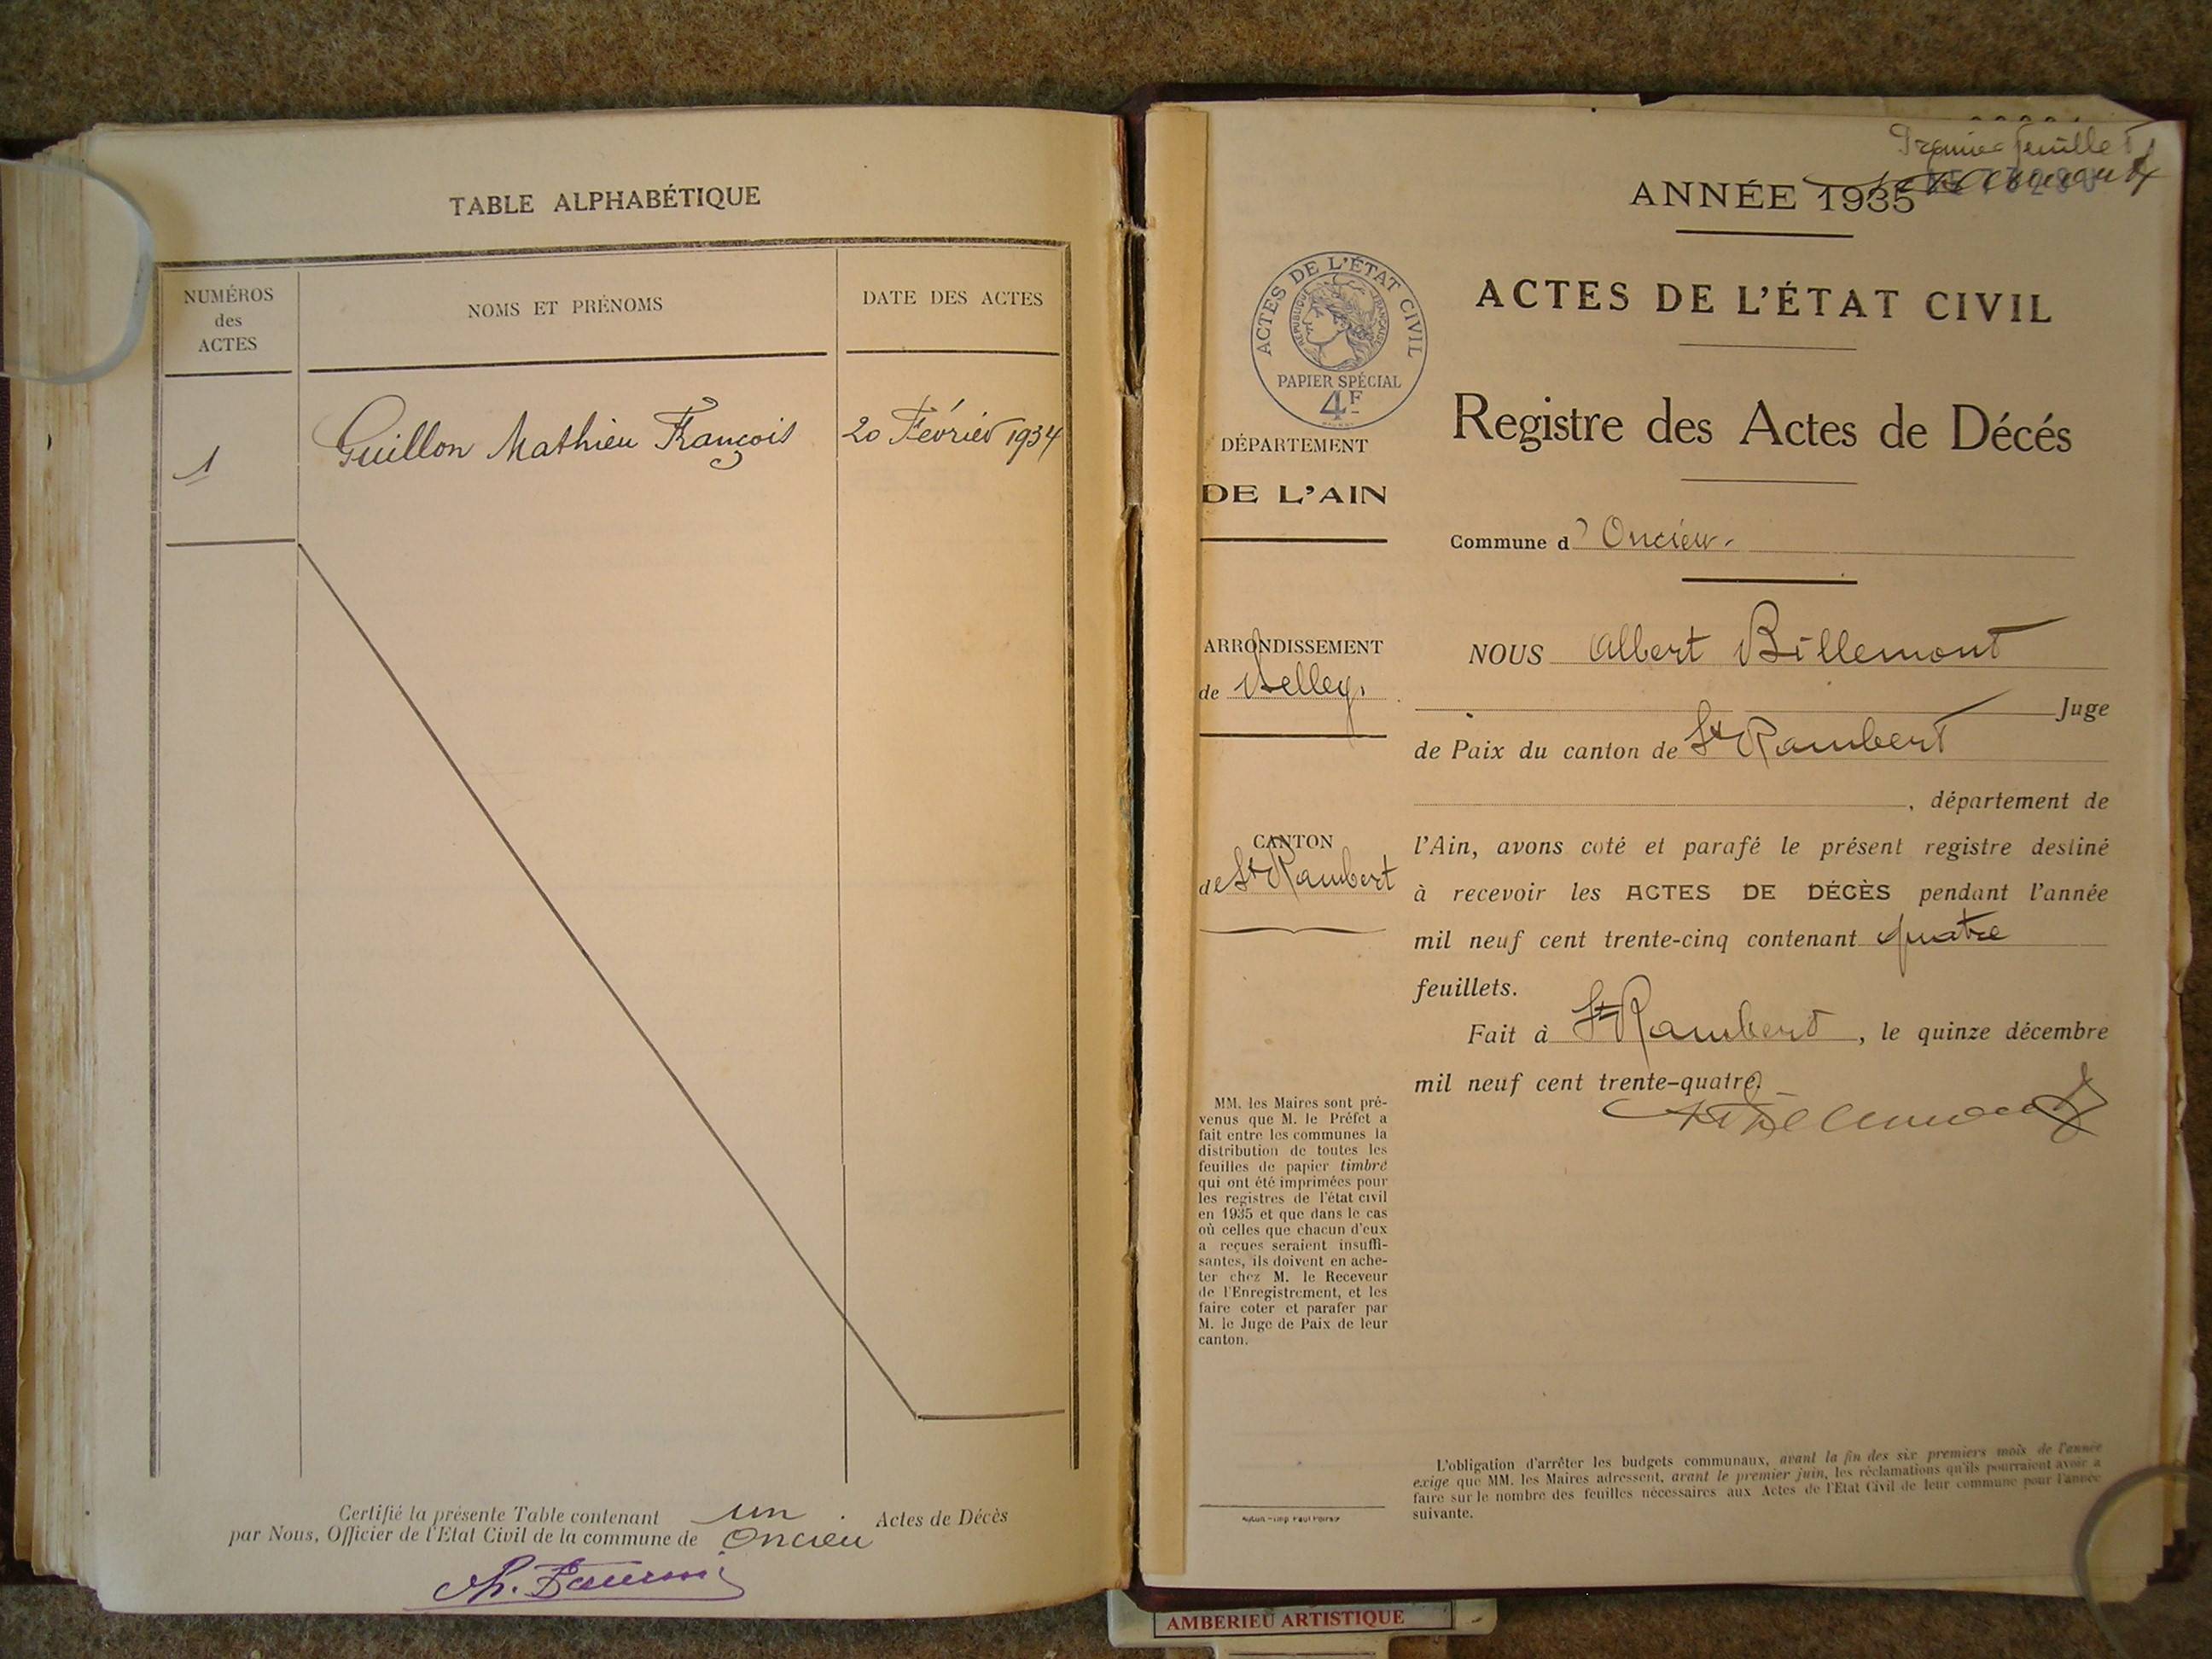 TABLE ALPHABÉTIQUE
NUMÉROS
des
ACTES
NOMS ET PRÉNOMS
DATE DES ACTES
1
Guillon Mathieu François
20 Février 1934
Certifié la présente Table contenant un Actes de Décès
par Nous, Officier de l'Etat Civil de la commune de Oncieu
Premier feuillet
ANNÉE 1935
ACTES DE L'ÉTAT CIVIL
RÉPUBLIQUE FRANÇAISE
PAPIER SPÉCIAL
4F
ACTES DE L'ÉTAT CIVIL
Registre des Actes de Décés
DÉPARTEMENT
DE L'AIN
Commune d'Oncieu.
ARRONDISSEMENT
de Belley.
CANTON
de St Rambert
NOUS Albert Billemont
Juge
de Paix du canton de St Rambert
, département de
l'Ain, avons coté et parafé le présent registre destiné
à recevoir les ACTES DE DÉCÈS pendant l'année
mil neuf cent trente-cinq contenant quatre
feuillets.
Fait à St Rambert, le quinze décembre
mil neuf cent trente-quatre.
MM. les Maires sont pré-
venus que M. le Préfet a
fait entre les communes la
distribution de toutes les
feuilles de papier timbré
qui ont été imprimées pour
les registres de l'état civil
en 1935 et que dans le cas
où celles que chacun d'eux
a reçues seraient insuffi-
santes, ils doivent en ache-
ter chez M. le Receveur
de l'Enregistrement, et les
faire coter et parafer par
M. le Juge de Paix de leur
canton.
L'obligation d'arrêter les budgets communaux, avant la fin des six premiers mois de l'année
exige que MM. les Maires adressent, avant le premier juin, les réclamations qu'ils pourraient avoir à
faire sur le nombre des feuilles nécessaires aux Actes de l'Etat Civil de leur commune pour l'année
suivante.
AMBERIEU ARTISTIQUE